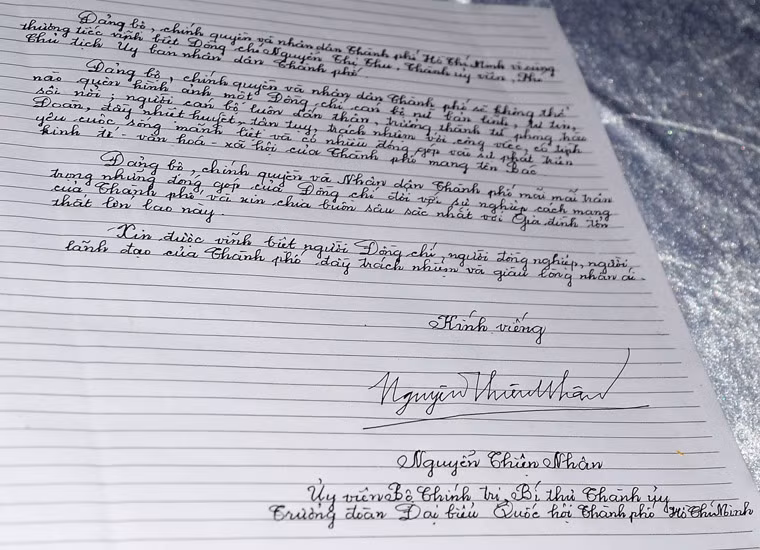 Đảng bộ, chính quyền và nhân dân Thành phố Hồ Chí Minh vô cùng
thương tiếc vĩnh biệt Đồng chí Nguyễn Thị Thu, Thành ủy viên, Phó
Chủ tịch Ủy ban nhân dân Thành phố.
Đảng bộ, chính quyền và nhân dân Thành phố sẽ không thể
nào quên hình ảnh một Đồng chí cán bộ nữ bản lĩnh, tự tin,
sôi nổi, người cán bộ luôn dấn thân, trưởng thành từ phong trào
Đoàn, đầy nhiệt huyết, tận tụy, trách nhiệm với công việc, có tình
yêu cuộc sống mãnh liệt và có nhiều đóng góp vào sự phát triển
kinh tế - văn hoá - xã hội của Thành phố mang tên Bác.
Đảng bộ, chính quyền và Nhân dân Thành phố mãi mãi trân
trọng những đóng góp của Đồng chí đối với sự nghiệp cách mạng
của Thành phố và xin chia buồn sâu sắc nhất với Gia đình tổn
thất lớn lao này.
Xin được vĩnh biệt người Đồng chí, người đồng nghiệp, người
lãnh đạo của Thành phố đầy trách nhiệm và giàu lòng nhân ái.
Kính viếng
Nguyễn Thiện Nhân
Nguyễn Thiện Nhân
Ủy viên Bộ Chính trị, Bí thư Thành ủy
Trưởng đoàn Đại biểu Quốc hội Thành phố Hồ Chí Minh